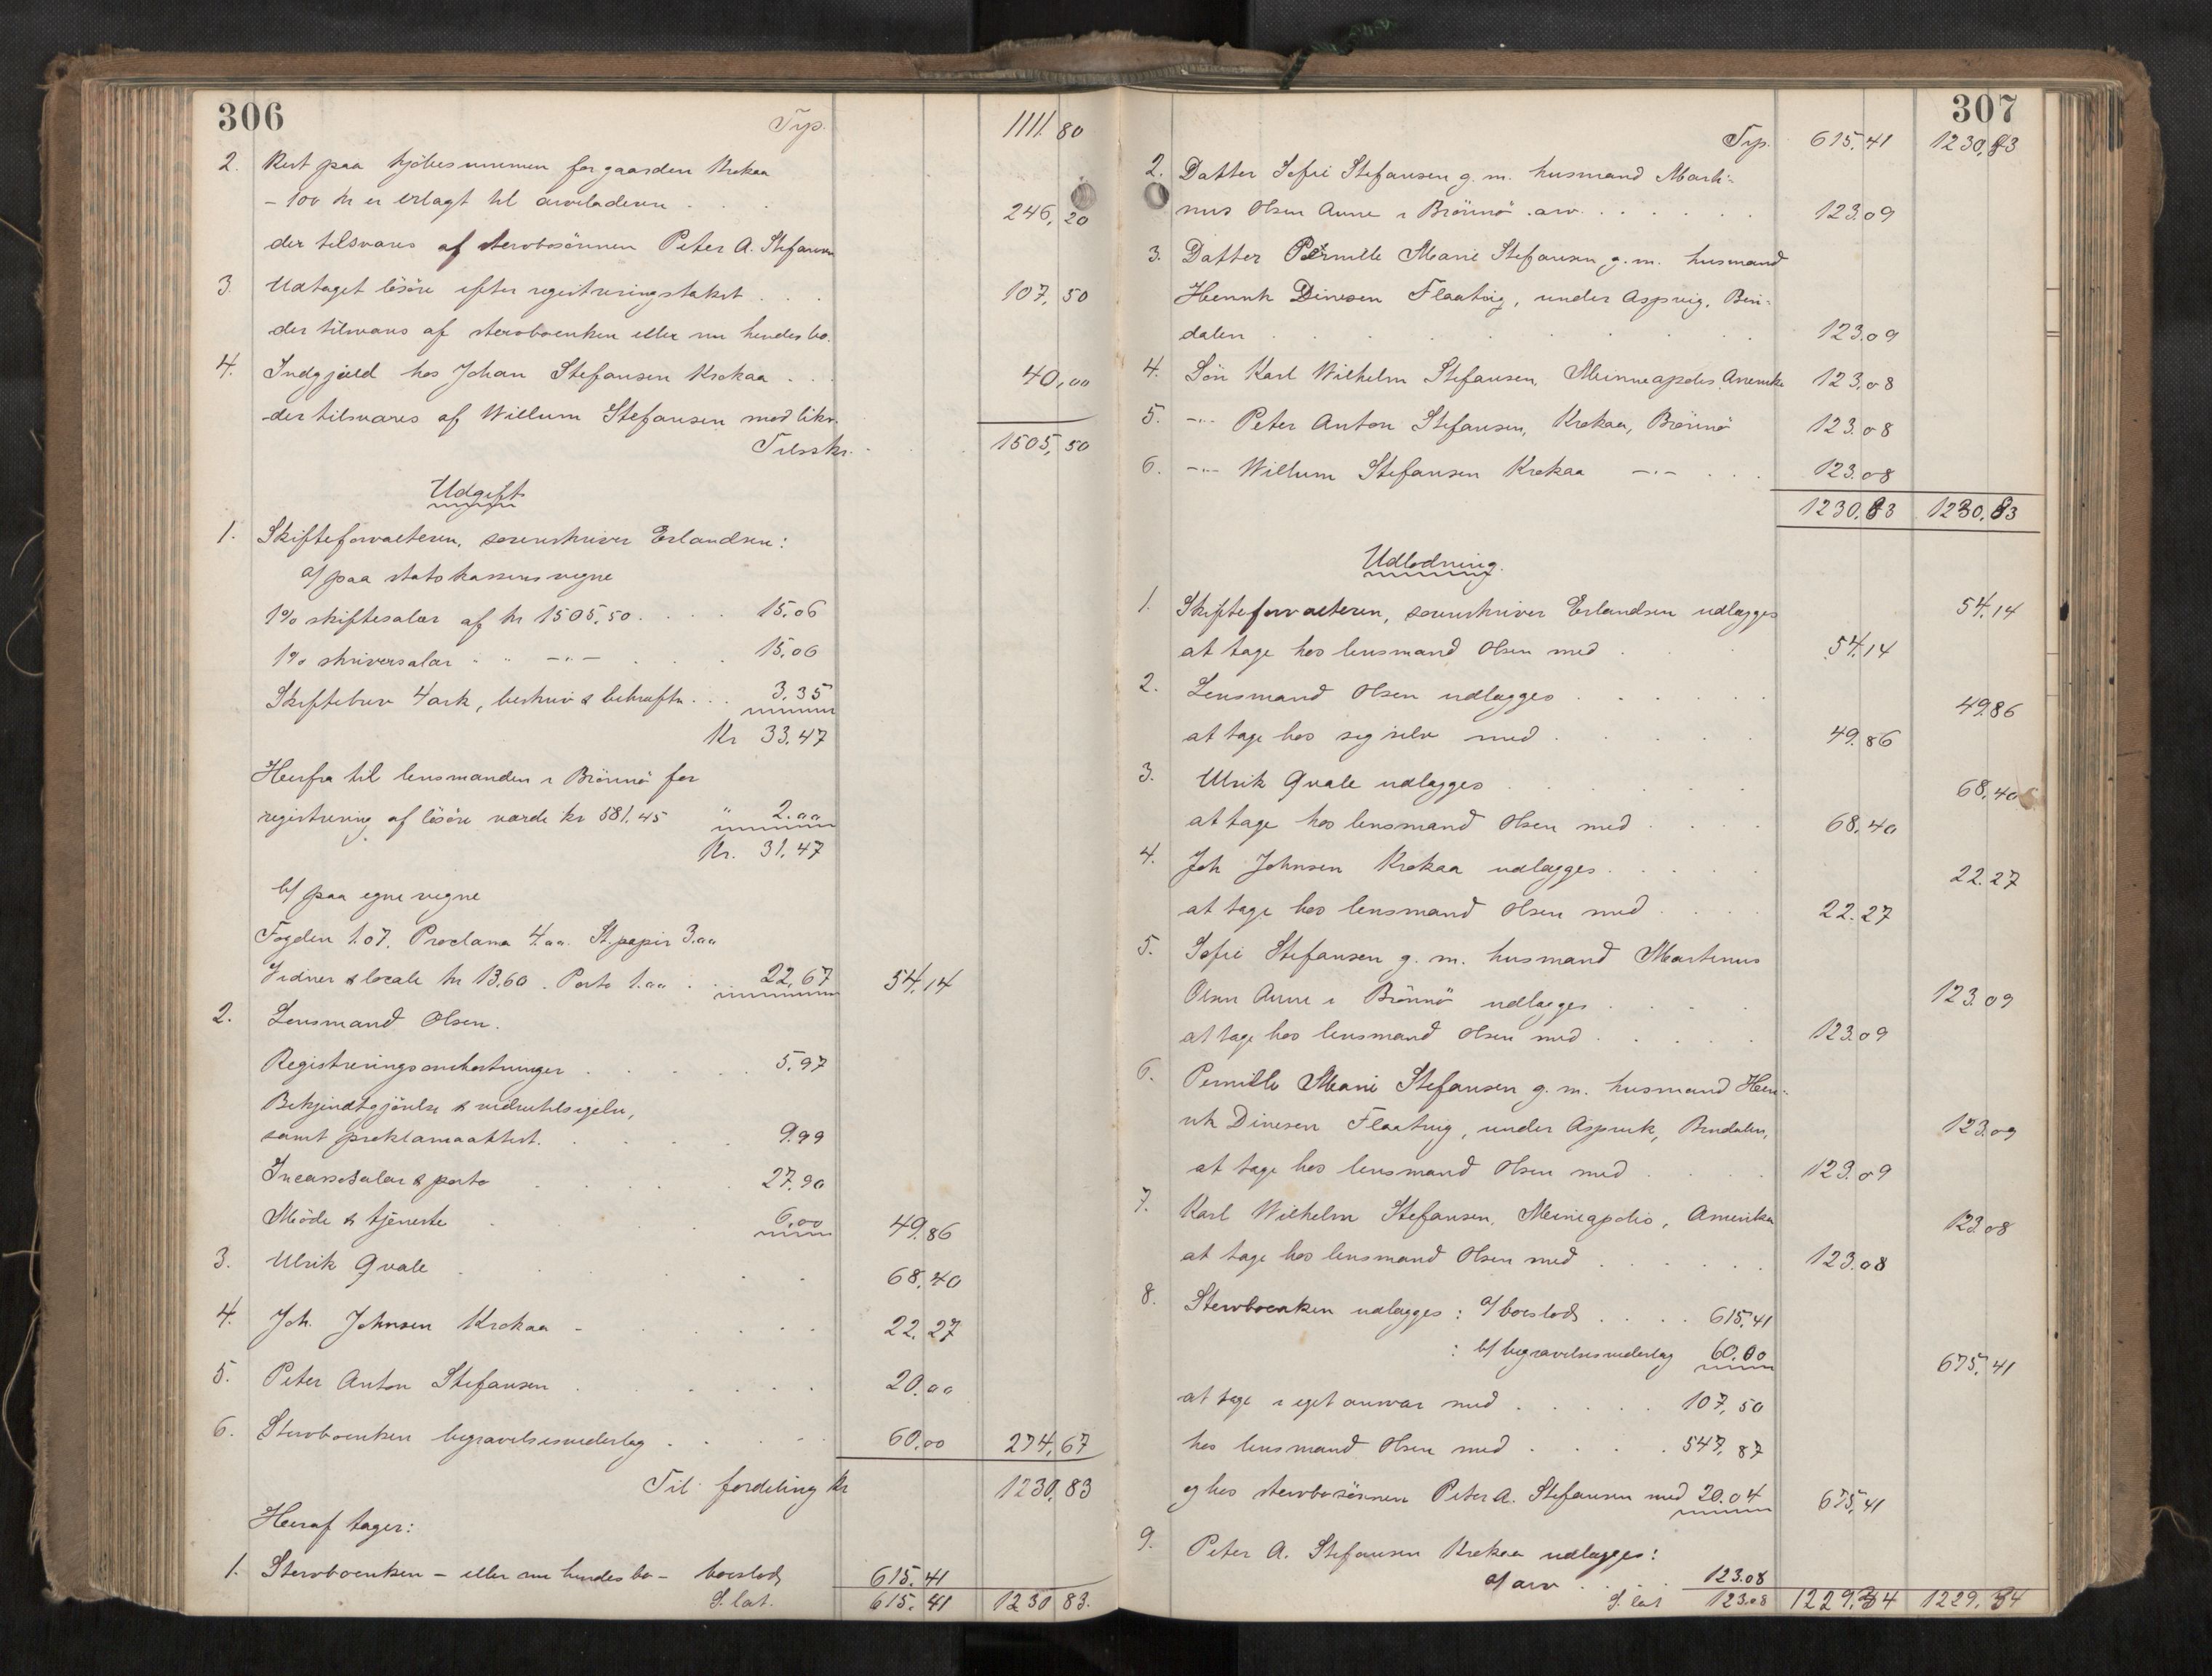 306
Trp. 1111. 80
2. Rest paa kjöbesummen for gaarden Krokaa
– 100 kr er erlagt til arveladeren . . . 246, 20
der tilsvares af sterbosönnen Peter A. Stefansen
3. Udtaget lösöre efter registreringstakst . . . 107, 50
der tilsvares af sterboenken eller nu hendes bo.
4. Indgjæld hos Johan Stefansen Krokaa . . . 40,00
der tilsvares af Willum Stefansen med likv.
Tilsskr. . . 1505, 50
Udgift
1. Skifteforvalteren, sorenskriver Erlandsen:
a/ paa statskassens vegne
1% skiftesalær af kr 1505,50 . . . . 15,06
1% skriversalær " " –"– . . . 15,06
Skiftebrev 4 ark, beskriv & bekræftn . . . 3,35
Kr 33,47
Herfra til lensmanden i Brönnö for
registrering af lösöre værdi kr 581,45 " 2.00
Kr. 31,47
b/ paa egne vegne
Fogden 1.07. Proclama 4.00. St. papir 3.00
Vidner & locale kr 13,60. Porto 1.00 . . 22,67 54,14
2. Lensmand Olsen.
Registreringsomkostninger . . . . . 5,97
Bekjendtgjörelse &
samt proklamaattest. . . . . 9.99
Incassosalær & porto . . . . . 27,90
Möde & tjeneste . . . 6,00 49,86
3. Ulrik Qvale . . . . . 68,40
4. Joh. Johnsen Krokaa – . . . . . 22,27
5. Peter Anton Stefansen . . . . . . 20.00
6. Sterboenken begravelsesvederlag . . . . 60,00 274,67
Til fordeling kr 1230,83
Heraf tager:
1. Sterboenken – eller nu hendes bo – boeslod 615,41
S. lat. 615. 41 1230 83.
307
Trp. 615,41 1230,83
2. Datter Sofie Stefansen g. m. husmand Marti-
nus Olsen Aune i Brönnö . arv . . . . . . 123.09
3. Datter Pernille Marie Stefansen g. m. husmand
Henrik Dinesen Flaatvig, under Aspvig, Bin-
dalen . . . . . . 123.09
4. Sön Karl Wilhelm Stefansen, Minneapolis, Amerika 123,08
5. –"– Peter Anton Stefansen, Krokaa, Brönnö 123.08
6. –"– Willum Stefansen Krokaa –"– . . . 123.08
1230,83 1230,83
Udlodning.
1. Skifteforvalteren, sorenskriver Erlandsen udlægges 54,14
at tage hos lensmand Olsen med . . . 54,14
2. Lensmand Olsen udlægges . . . . . . 49.86
at tage hos sig selv med . . . . . 49.86
3. Ulrik Qvale udlægges . . . . . . 68,40
at tage hos lensmand Olsen med . . . . 68,40
4. Joh Johnsen Krokaa udlægges . . . . . 22.27
at tage hos lensmand Olsen med . . . . 22.27
5. Sofie Stefansen g. m. husmand Martinus
Olsen Aune i Brönnö udlægges . . . . 123.09
at tage hos lensmand Olsen med . . . . . 123.09
6. Pernille Marie Stefansen g. m. husmand Hen-
rik Dinesen Flaatvig, under Aspvik, Bindalen, 123.09
at tage hos lensmand Olsen med . . . . 123.09
7. Karl Wilhelm Stefansen, Mineapolis, Amerika 123.08
at tage hos lensmand Olsen med . . . . . . 123.08
8. Sterboenken udlægges: a/ boeslod . . . . 615,41
: b/ begravelsesvederlag 60.00 675,41
at tage i eget ansvar med . . . . . 107, 50
hos lensmand Olsen med . . . . . 547, 87
og hos sterbosönnen Peter A. Stefansen med 20.04 675,41
9. Peter A. Stefansen Krokaa udlægges:
a/ arv . . . . 123.08
S. lat 123.08 1229,34 1229,34